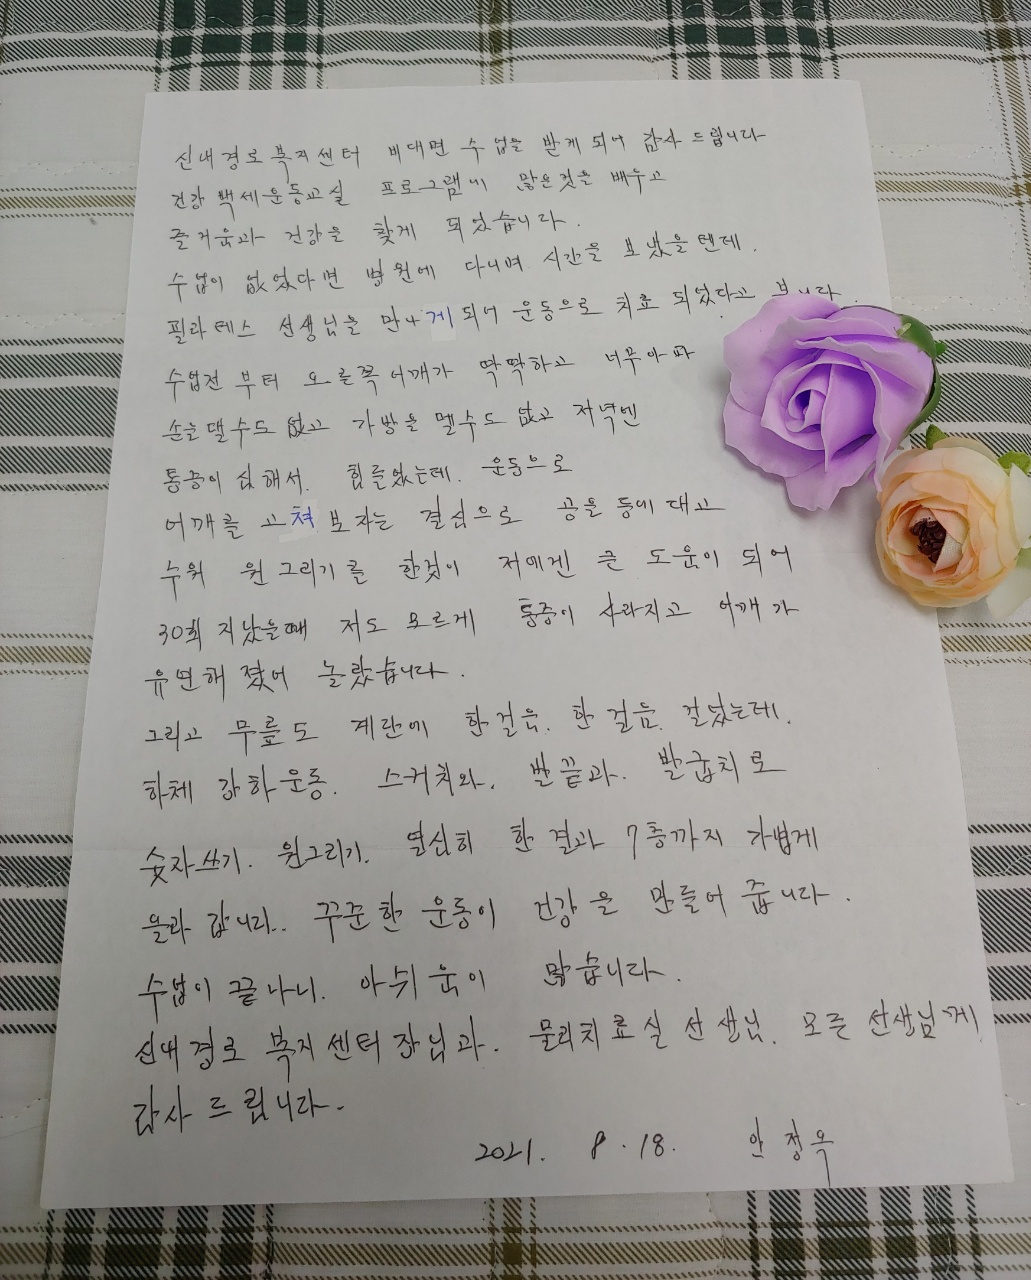 신내경로복지센터 비대면 수업을 받게 되어 감사 드립니다
건강 백세운동교실 프로그램에 많은것을 배우고
즐거움과 건강을 찾게 되었습니다.
수업이 없었다면 병원에 다니며 시간을 보냈을텐데.
필라테스 선생님을 만나게 되어 운동으로 치료 되었다고 봅니다.
수업전 부터 오른쪽 어깨가 딱딱하고 너무아파
손을 댈수도 없고 가방을 멜수도 없고 저녁엔
통증이 심해서. 힘들었는데. 운동으로
어깨를 고쳐 보자는 결심으로 공을 등에 대고
수워 원 그리기를 한것이 저에겐 큰 도움이 되어
30회 지났을때 저도 모르게 통증이 사라지고 어깨가
유연해 졌어 놀랐습니다.
그리고 무릎도 계단에 한걸음. 한 걸음 걸었는데.
하체 강하운동. 스커취와. 발끝과. 발굽치로
숫자쓰기. 원그리기. 열심히 한 결과 7층까지 가볍게
올라 갑니다.. 꾸준한 운동이 건강을 만들어 줍니다.
수업이 끝나니. 아쉬움이 많습니다.
신내경로 복지센터장님과. 물리치료실 선생님. 모든 선생님께
감사 드립니다.
2021. 8. 18. 안정옥